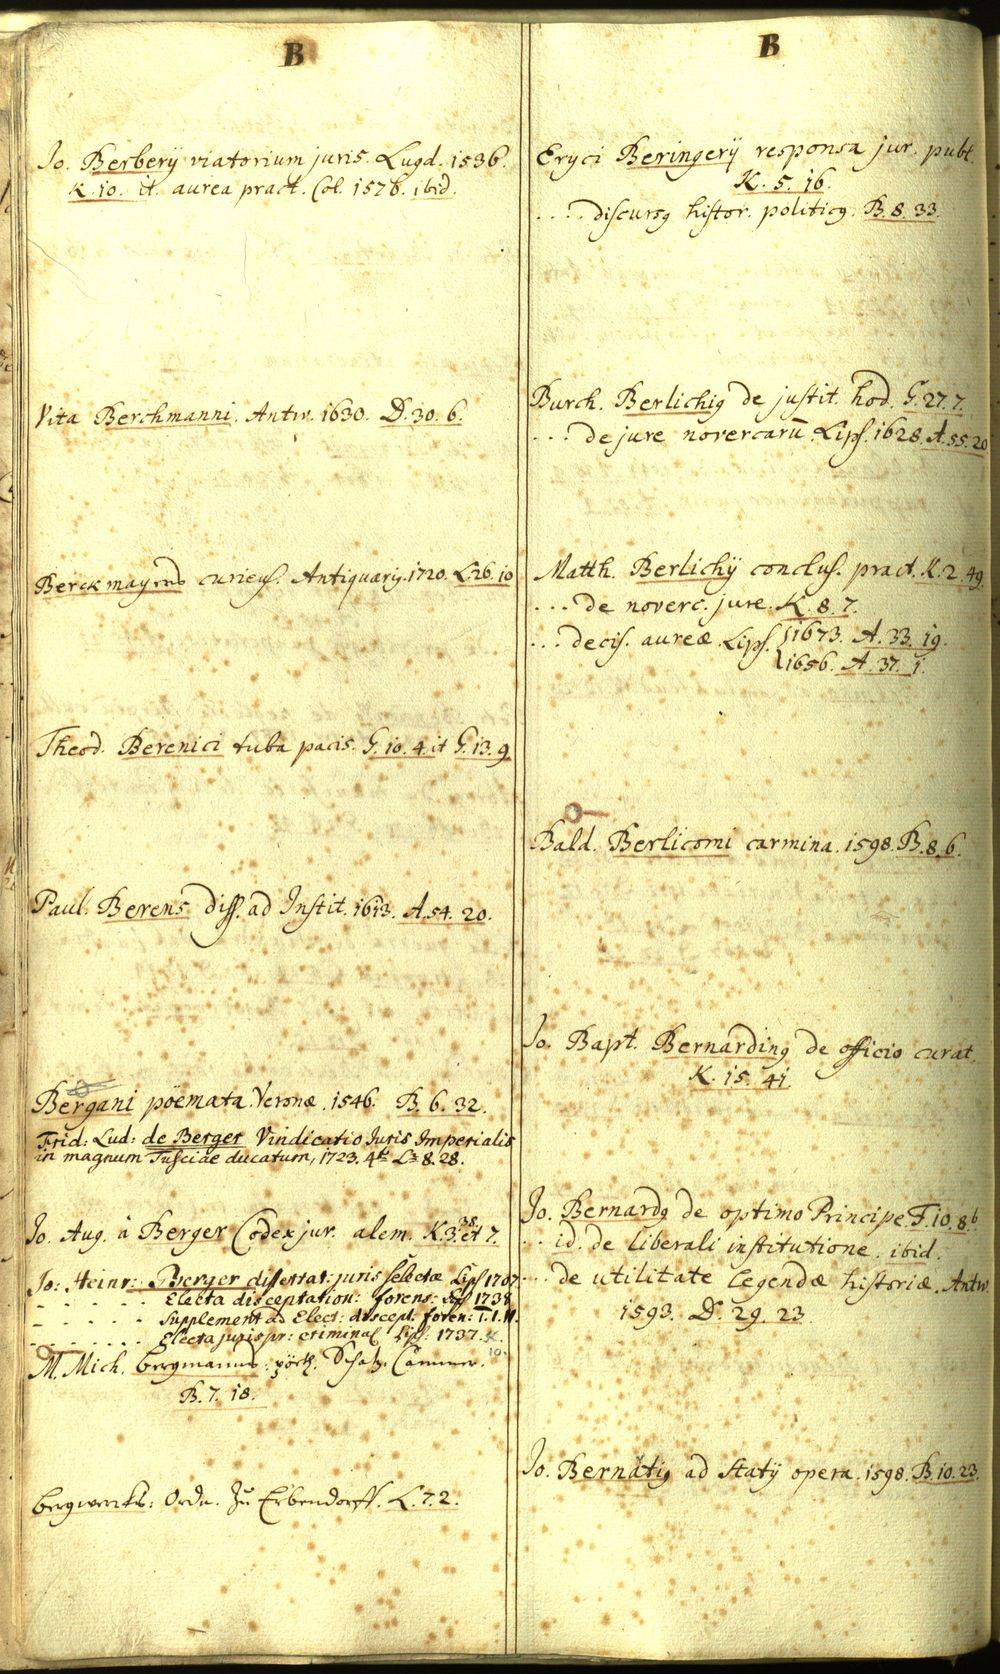 B
Jo. Berberÿ viatorium juris. Lugd. 1536.
K. 10. it. aurea pract. Col. 1576. ibid.
Vita Berchmanni. Antw. 1630. D. 30. 6.
Berckmayers curieus. Antiquarÿ. 1720. L. 26. 10
Theod. Berenici tuba pacis. G. 10. 4. it G. 13. 9
Paul. Berens diss. ad Instit. 1613. A. 54. 20.
Bergani poëmata. Veronæ. 1546. B. 6. 32.
Frid: Lud: de Berger Vindicatio Juris Imperialis
in magnum Tusciae ducatum, 1723. 4to L. 8. 28.
Jo. Aug. à Berger Codex jur. alem. K. 3. 38. et 7.
Jo: Heinr: Berger dissertat: juris selectæ Lips 1707.
- - - - - Electa disceptation: forens: 1738
- - - - - Supplement ad Elect: discept. foren: T. I. II.
- - - - - Electa jurispr: criminal Lips: 1737. K.
10.
M. Mich. Bergmanns. pöet. Schatz-Cammer.
B. 7. 18.
Bergwerks: Ordn. Zu Erbendorff. L. 7. 2.
B
Eryci Beringerÿ responsa jur. publ.
K. 5. 16.
.... discursꝯ histor. politicꝯ. B. 8. 33.
Burch. Berlichiꝯ de justit. hod. G. 27. 7.
... de jure novercarū. Lips. 1628. A. 55. 20
Matth. Berlichÿ conclus. pract. K. 2. 49.
... de noverc. jure. K. 8. 7.
... decis. aureæ. Lips. {1673. A. 33. 19.
{1656. A. 37. 1.
Bald. Berlicomi carmina. 1598. B. 8. 6.
Jo. Bapt. Bernardinꝯ de officio curat.
K. 15. 41.
Jo. Bernardꝯ de optimo Principe. F. 10. 8b.
... id. de liberali institutione. ibid.
... de utilitate legendæ historiæ. Antw.
1593. D. 29. 23.
Jo. Bernatiꝯ ad Statÿ opera. 1598. B. 10. 23.